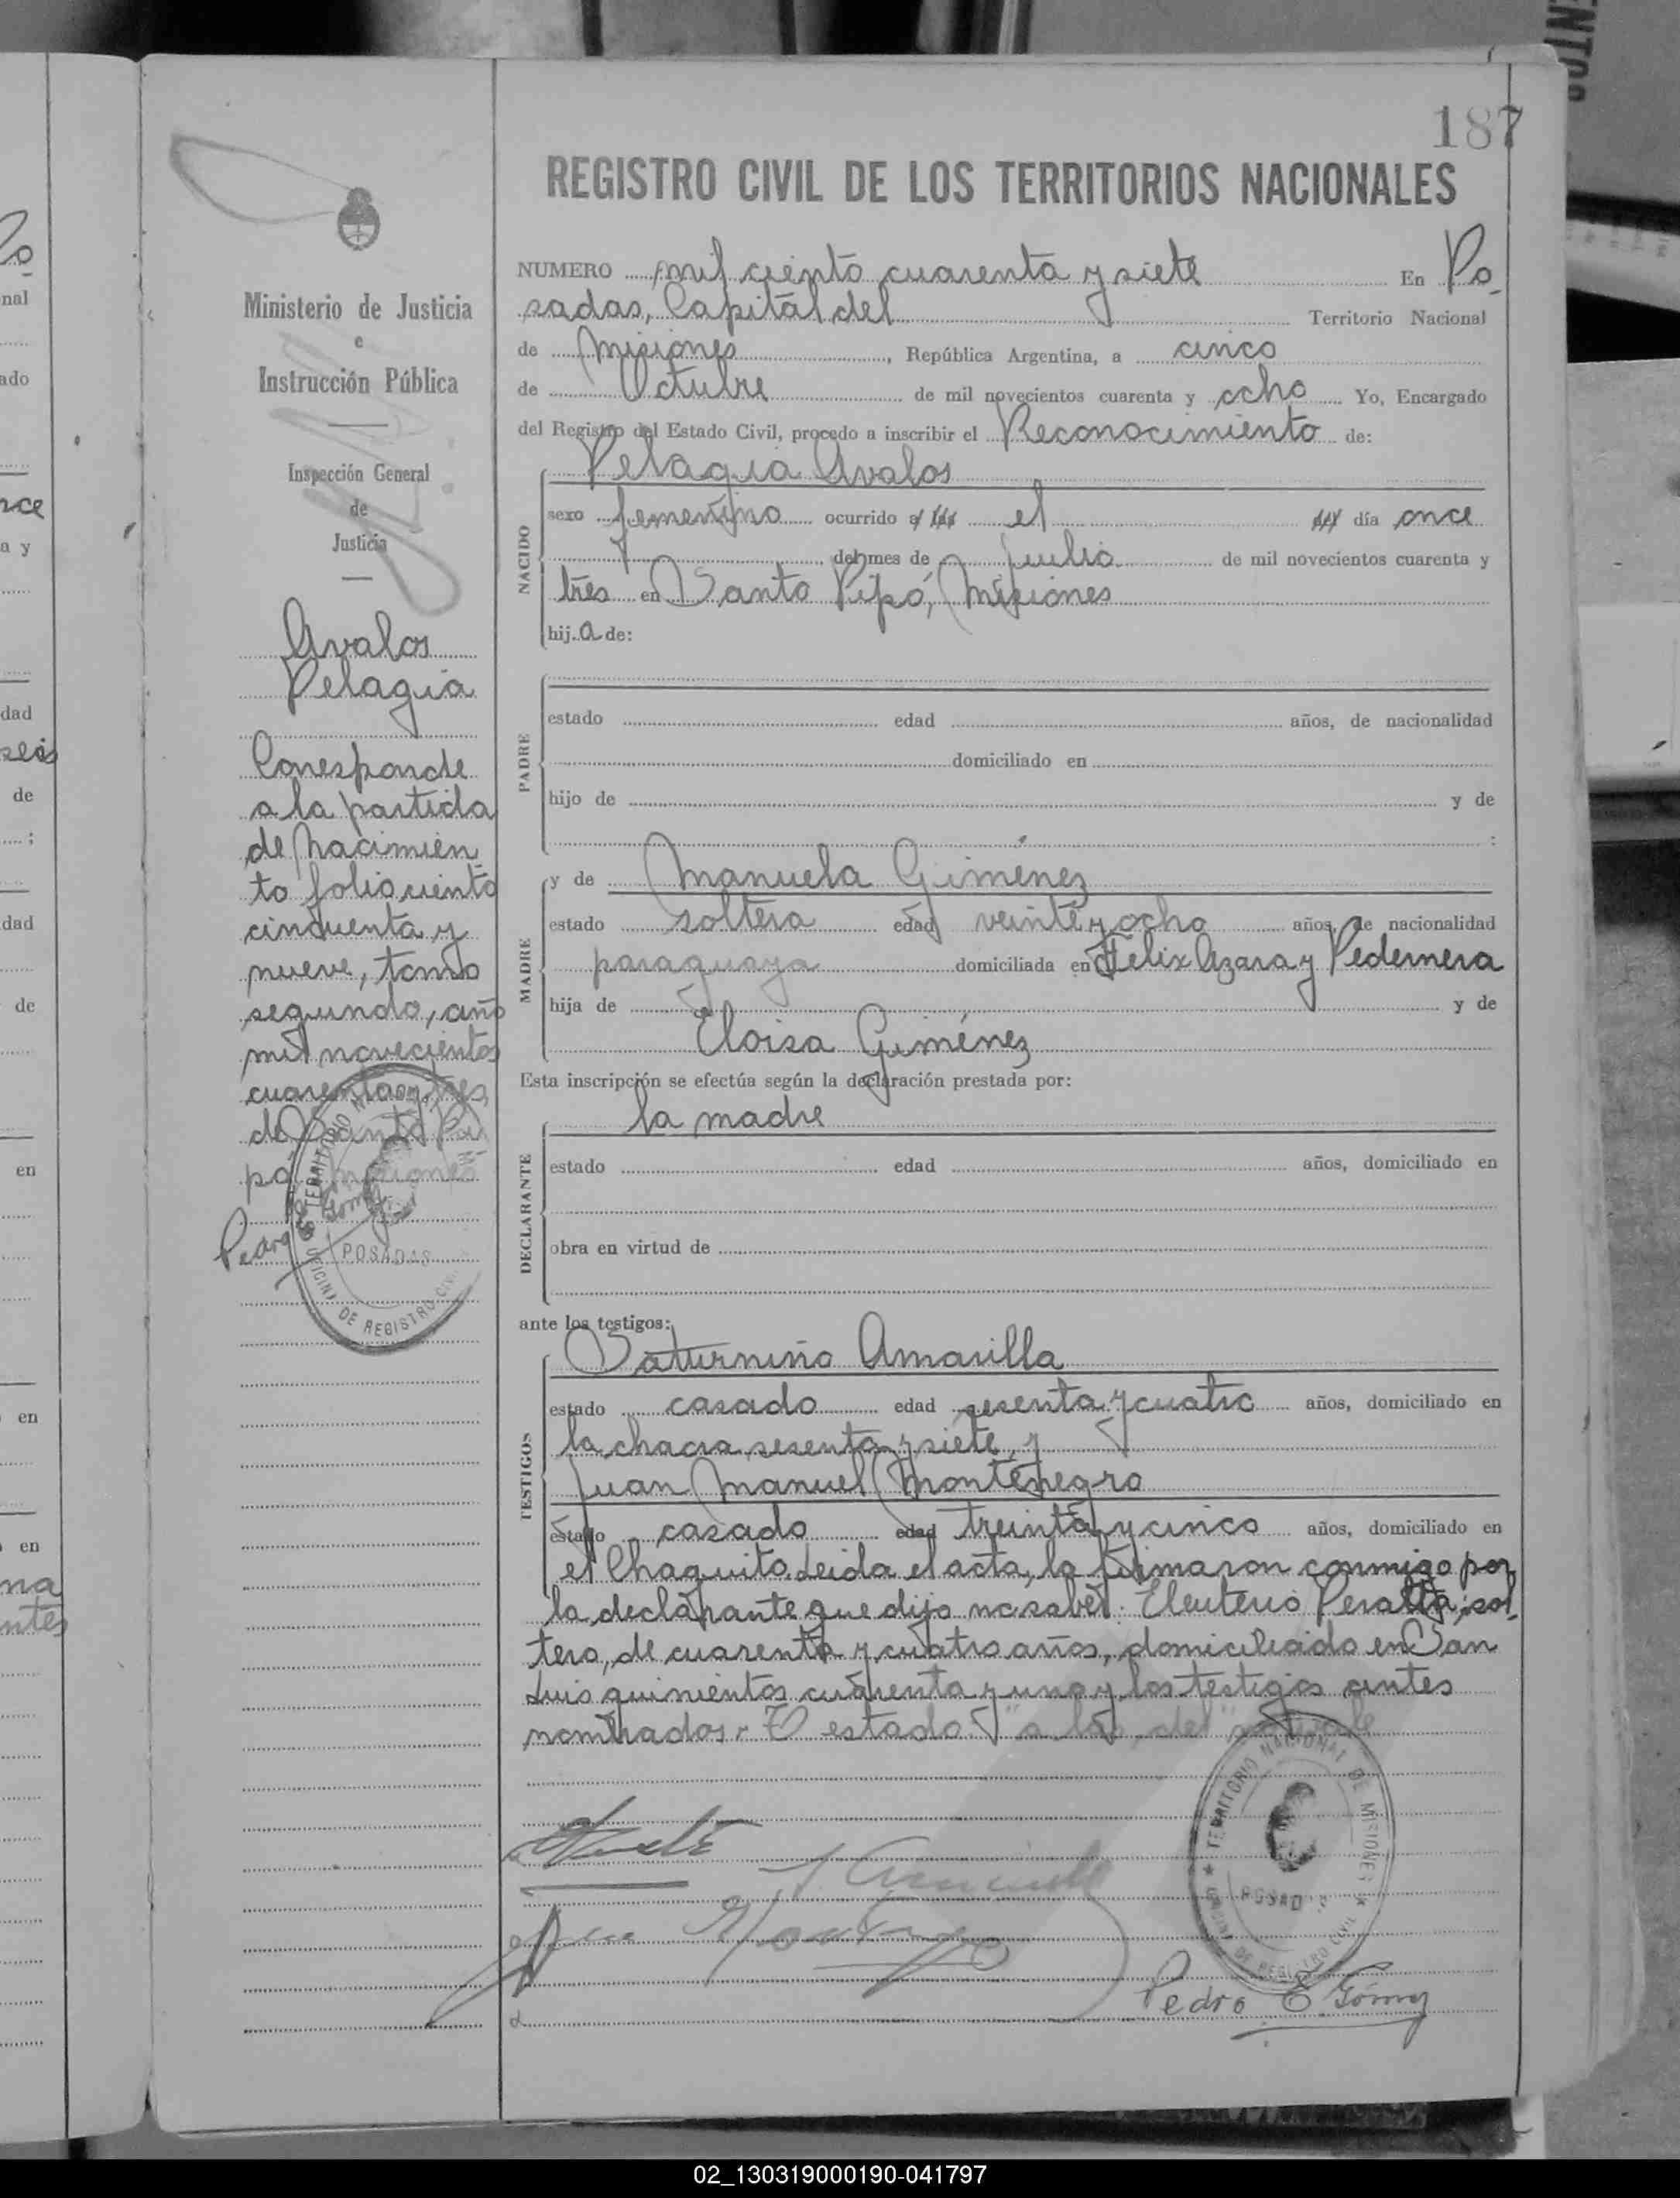 187
REGISTRO CIVIL DE LOS TERRITORIOS NACIONALES
Ministerio de Justicia
e
Instrucción Pública
Inspección General
de
Justicia
Avalos
Pelagia
Corresponde
a la partida
de nacimien
to folio ciento
cincuenta y
nueve, tomo
segundo, año
mil novecientos
cuarenta y tres,
de Santo Pi
pó, Misiones
Pedro E. Gómez
TERRITORIO
POSADAS
OFICINA DE REGISTRO CIVIL
NUMERO mil ciento cuarenta y siete En Po
sadas, Capital del Territorio Nacional
de Misiones, República Argentina, a cinco
de Octubre de mil novecientos cuarenta y ocho Yo, Encargado
del Registro del Estado Civil, procedo a inscribir el Reconocimiento de:
NACIDO
Pelagia Avalos
sexo femenino ocurrido a las el del día once
del mes de julio de mil novecientos cuarenta y
tres en Santo Pipó, Misiones
hij.a de:
PADRE
estado edad años, de nacionalidad
domiciliado en
hijo de y de
:
MADRE
y de Manuela Giménez
estado soltera edad veinte y ocho años, de nacionalidad
paraguaya domiciliada en Felix Azara y Pedernera
hija de y de
Eloisa Giménez
Esta inscripción se efectúa según la declaración prestada por:
DECLARANTE
la madre
estado edad años, domiciliado en
obra en virtud de
ante los testigos:
TESTIGOS
Saturnino Amarilla
estado casado edad sesenta y cuatro años, domiciliado en
la chacra sesenta y siete, y
Juan Manuel Montenegro
estado casado edad treinta y cinco años, domiciliado en
el Chaquito. Leida el acta, la firmaron conmigo por
la declarante que dijo no saber: Eleuterio Peralta, sol
tero, de cuarenta y cuatro años, domiciliado en San
Luis quinientos cuarenta y uno y los testigos antes
nombrados. T estado "a las del" no vale
TERRITORIO NACIONAL DE MISIONES
POSADAS
OFICINA DE REGISTRO CIVIL
Pedro E. Gómez
02_130319000190-041797